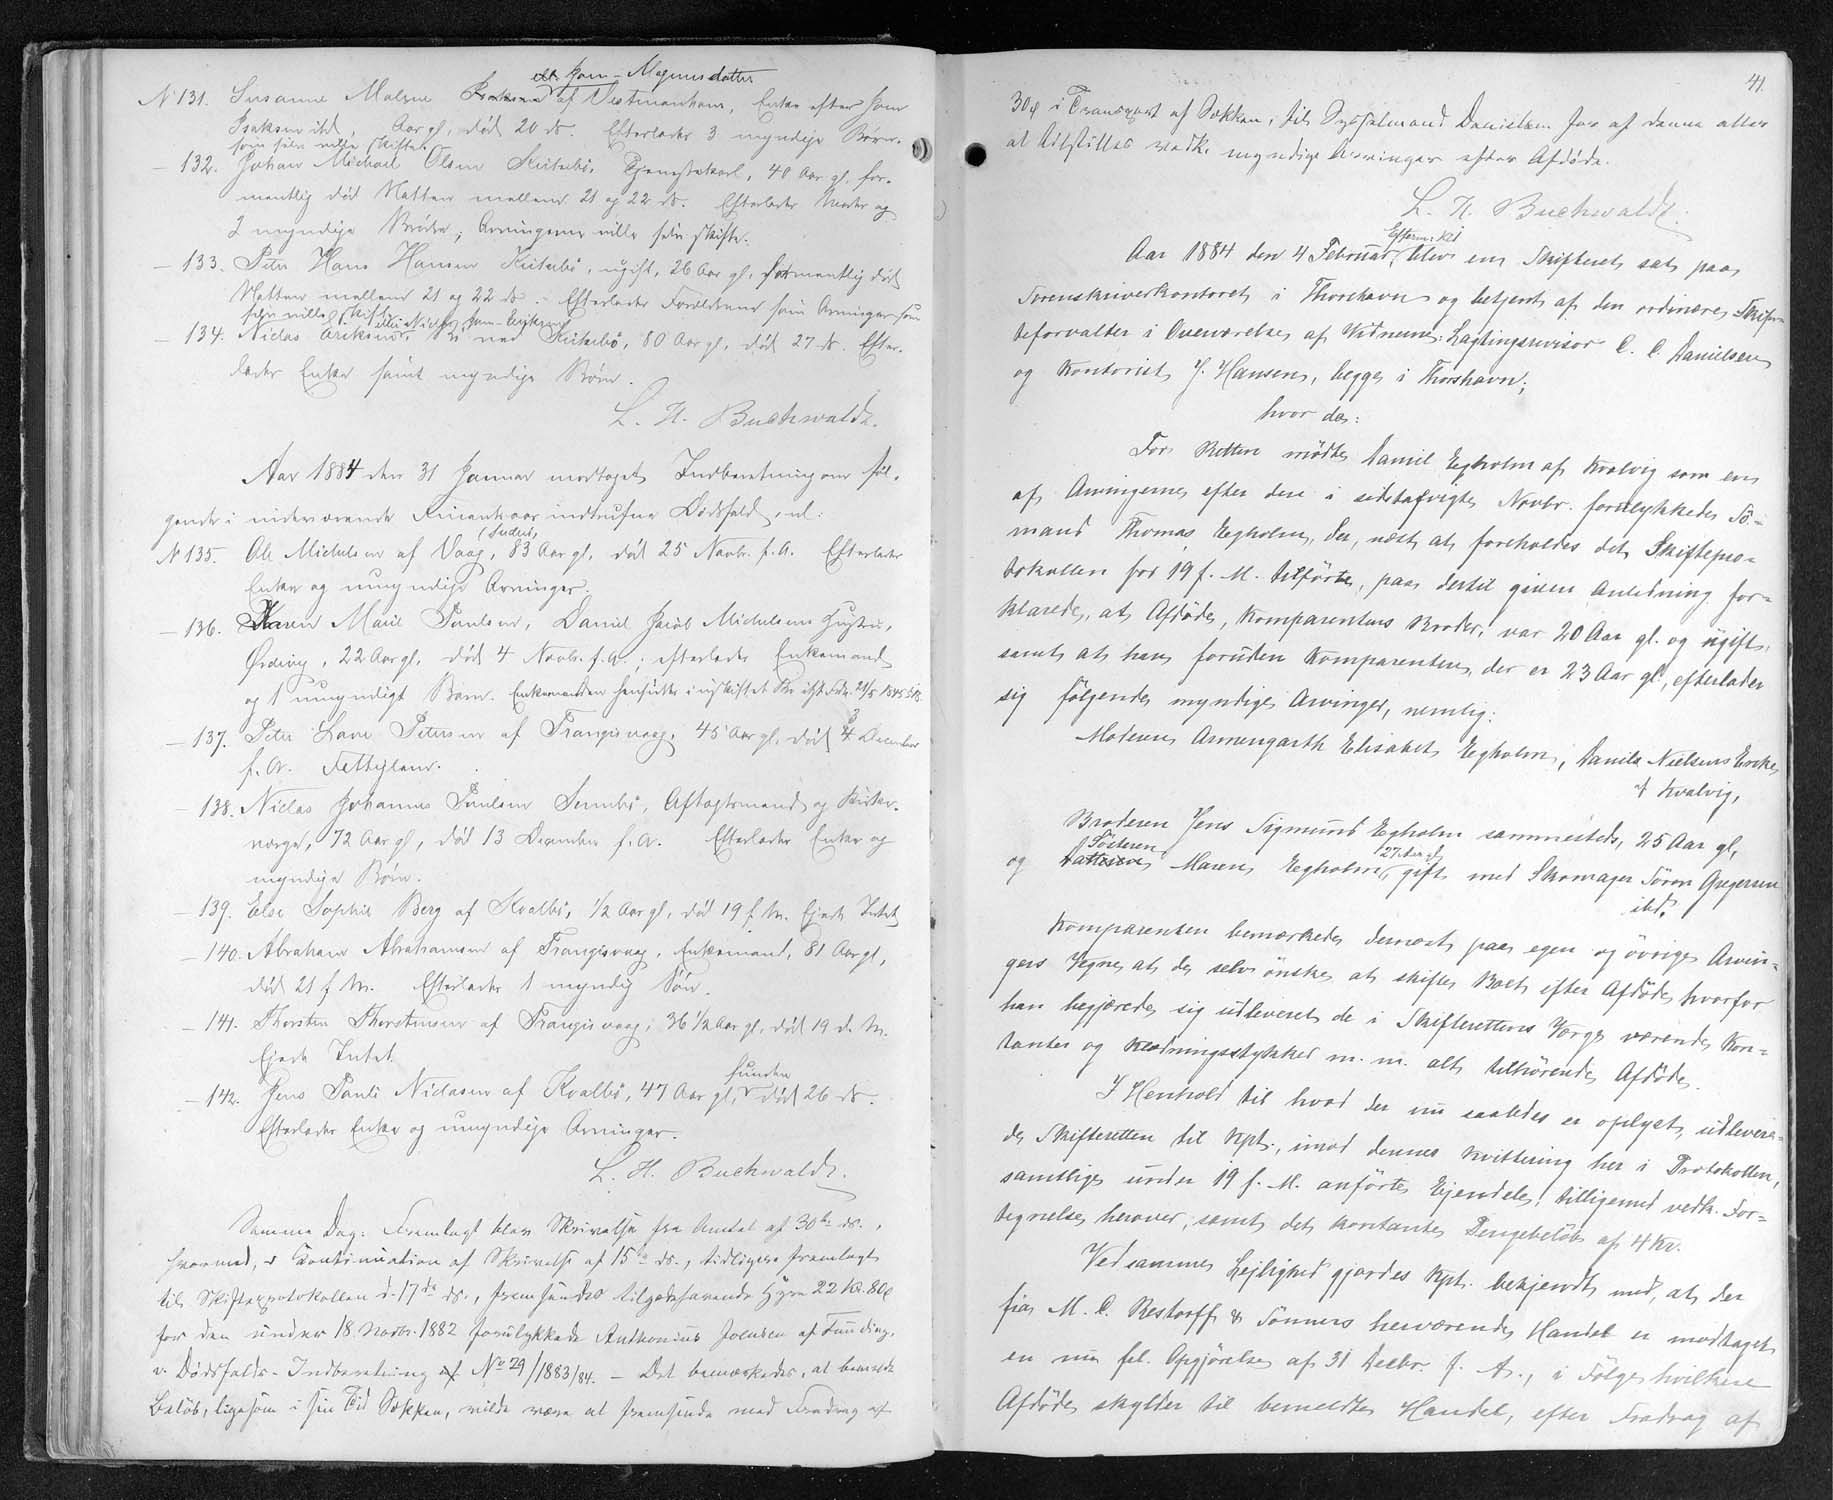 ell. Joen-Magnusdatter
N 131. Susanne Malene Joensen af Vestmanhavn, Enke efter Joen
Isaksen ibd, Aar gl, død 20 ds. Efterlader 3 myndige Børn.
som selv ville skifte.
- 132. Johan Michael Olsen Kirkebø, Tjenestekarl, 40 Aar gl. for-
mentlig død Natten mellem 21 og 22 ds. Efterlader Moder og
2 myndige Brødre; Arvingerne ville selv skifte.
- 133. Peter Hans Hansen Kirkebø, ugift, 26 Aar gl, formentlig død
Natten mellem 21 og 22 ds. Efterlader Forældrene som Arvinger som
selv ville skifte
- 134. Niclas Eriksen, eller Niclas Joen-Eriksen, ned Kirkebø, 80 Aar gl, død 27 ds. Efter-
lader Enke samt myndige Børn.
L. H. Buchwaldt.
Aar 1884 den 31 Januar modtoges Indberetning om føl-
gende i nærværende Finantsaar indtrufne Dødsfald, nl:
N 135. Ole Michelsen af Vaag, (Suderø, 83 Aar gl, død 25 Novbr. f. A. Efterlader
Enke og umyndige Arvinger.
- 136. Karen Marie Poulsen, Daniel Jacob Michelsens Hustru,
Ørdevig, 22 Aar gl, død 4 Novbr. f. A.; efterlader Enkemand
og 1 umyndigt Barn. Enkemanden hensidder i uskiftet Bo ifst Frdn. 21/5 1845 § 18.
- 137. Peter Lave Petersen af Trangisvaag, 45 Aar gl, død 3 December
f. A. Fattiglem.
- 138. Niclas Johannes Poulsen Sumbø, Aftagtsmand og Kirke-
værge, 72 Aar gl, død 13 December f. A. Efterlader Enke og
myndige Børn.
- 139. Else Sophie Berg af Kvalbø, 1/2 Aar gl, død 19 f. M. Ejede Intet
- 140. Abraham Abrahamsen af Trangisvaag, Enkemand, 81 Aar gl,
død 21 f. M. Efterlader 1 myndig Søn.
- 141. Thorsten Thorstensen af Trangisvaag, 36 1/2 Aar gl, død 19 d. M.
Ejede Intet
- 142. Jens Pauli Niclasen af Kvalbø, 47 Aar gl, funden død 26 ds.
Efterlader Enke og umyndige Arvinger.
L. H. Buchwaldt.
Samme Dag: Fremlagt blev Skrivelse fra Amtet af 30te ds.,
hvormed, i Continuation af Skrivelse af 15de ds., tidligere fremlagt
til Skifteprotokollen d. 17de ds., fremsendes tilgodehavende Hyre 22 Kr. 80 ø
for den under 18. Novbr. 1882 forulykkede Anthonius Joensen af Funding,
v. Dødsfalds-Indberetning af No 29/1883/84. – Det bemærkedes, at bemeldte
Beløb, ligesom i sin Tid Sækken, vilde være at fremsende med Fradrag af
41.
30 ø i Transport af Sækken, til Sysselmand Danielsen for af denne atter
at tilstilles vedk. myndige Arvinger efter Afdøde.
L. H. Buchwaldt.
Aar 1884 den 4 Februar, Efterm: Kl blev en Skifteret sat paa
Sorenskriverkontoret i Thorshavn og betjent af den ordinære Skif-
teforvalter i Overværelse af Vidnerne: Lagtingsrevisor E. C. Danielsen
og Kontorist J. Hansen, begge i Thorshavn;
hvor da:
For Retten mødte Daniel Egholm af Kvalvig som en
af Arvingerne efter den i sidstafvigte Novbr. forulykkede Sö-
mand Thomas Egholm, der, næst at foreholdes det Skiftepro-
tokollen for 19 f. M. tilførte, paa dertil given Anledning for-
klarede, at Afdøde, Komparentens Broder, var 20 Aar gl. og ugift,
samt at han foruden Komparenten, der er 23 Aar gl, efterlader
sig følgende myndige Arvinger, nemlig:
Moderen Armengarth Elisabet Egholm, Daniel Nielsens Enke,
af Kvalvig,
Broderen Jens Sigmund Egholm sammesteds, 25 Aar gl,
og Datteren Söstern Maren Egholm, 27 Aar gl, gift med Skomager Sören Gregersen
ibd.
Komparenten bemærkede dernæst paa egen og øvrige Arvin-
gers Vegne at de selv ønske at skifte Boet efter Afdøde, hvorfor
han begjærede sig udleveret de i Skifterettens Værge værende Kon-
tanter og Klædningsstykker m. m. alt tilhørende Afdøde.
I Henhold til hvad der nu saaledes er oplyst, udlevere-
de Skifteretten til Kpt., imod dennes Kvittering her i Protokollen,
samtlige under 19 f. M. anførte Ejendele, tilligemed vedk. For-
tegnelse herover, samt det kontante Pengebeløb af 4 Kr.
Ved samme Lejlighed gjordes Kpt. bekjendt med, at der
fra M. C. Restorff & Sønners herværende Handel er modtaget
en Opgjørelse af 31 Decbr. f. A., i Følge hvilken
Afdøde skylder til bemeldte Handel, efter Fradrag af